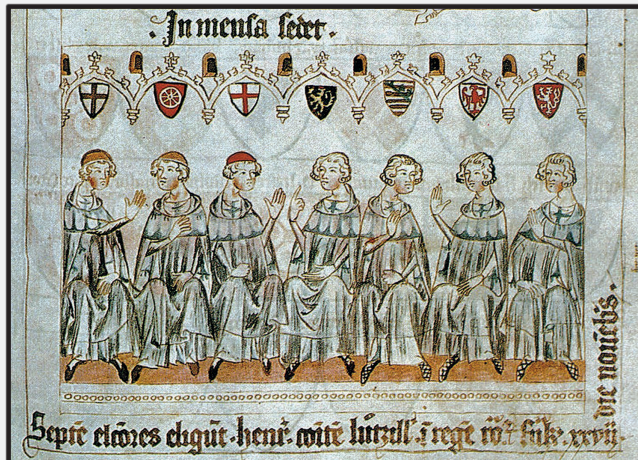 · In mensa sedet ·
Septē elc̄ores eligūt · henr̄ · coītē luczill' · ī regē · xxvij ·
die novēbis ·